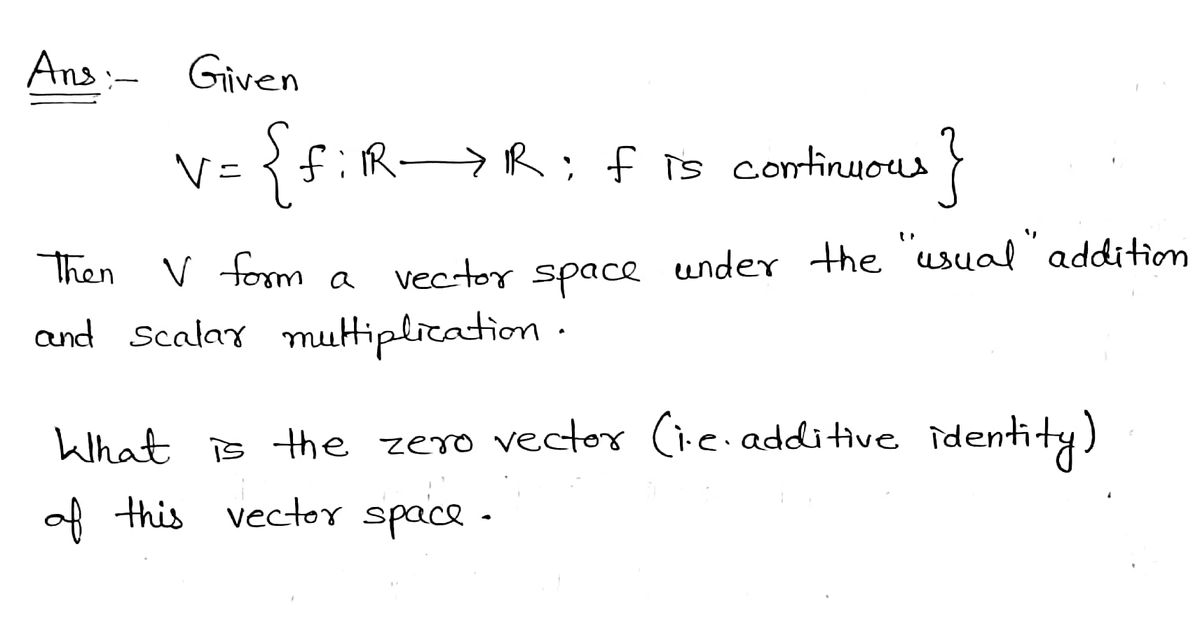 Ans :- Given
V = { f : ℝ ⟶ ℝ ; f is continuous }
Then V form a vector space under the "usual" addition
and scalar multiplication .
What is the zero vector (i.e. additive identity)
of this vector space .